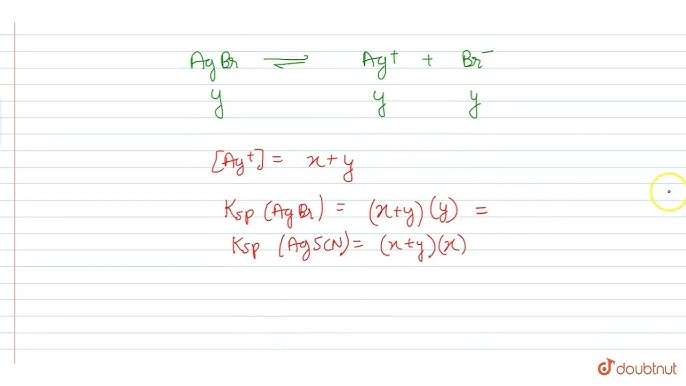 AgBr ⇌ Ag⁺ + Br⁻
y y y
[Ag⁺] = x+y
Ksp (AgBr) = (x+y)(y) =
Ksp (AgSCN) = (x+y)(x)
doubtnut